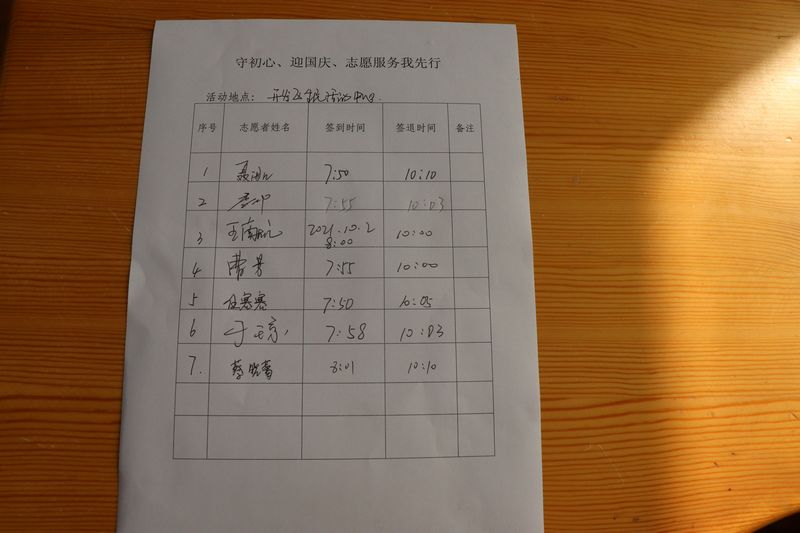 守初心、迎国庆、志愿服务我先行
活动地点： 开发区 活动中心
序号 志愿者姓名 签到时间 签退时间 备注
1 聂 7:50 10:10
2 7:55 10:03
3 王 2021.10.2 8:00 10:00
4 芳 7:55 10:00
5 任赛赛 7:50 10:05
6 于 琼 7:58 10:03
7. 蔡晓蕾 8:01 10:10